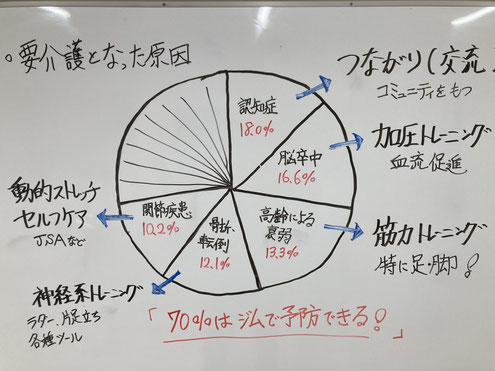 ○要介護となった原因
つながり(交流)
コミュニティをもつ
認知症
18.0%
脳卒中
16.6%
加圧トレーニング
血流促進
高齢による
衰弱
13.3%
筋力トレーニング
特に足・脚!
骨折、
転倒
12.1%
神経系トレーニング
ラダー、片足立ち
各種ツール
関節疾患
10.2%
動的ストレッチ
セルフケア
JSAなど
「70%はジムで予防できる!」